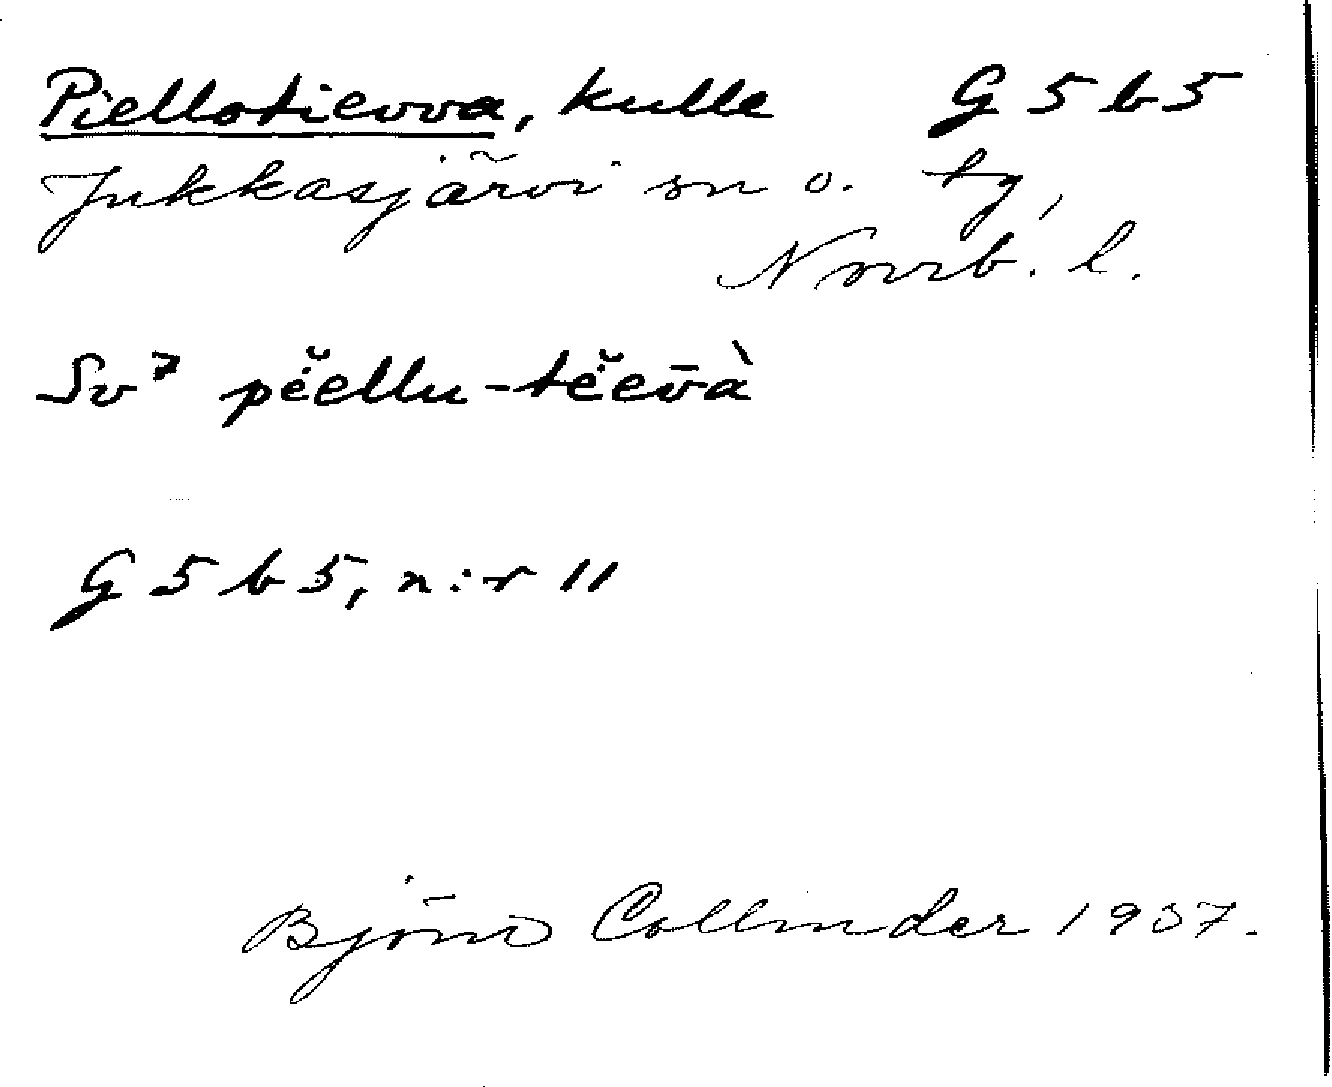 Piellotievva, kulle G 5 b 5
Jukkasjärvi sn o. tg,
Norrb. l.
Sv⁷ pĕellu-tĕev̄à
G 5 b 5, n:r 11
Björn Collinder 1937.